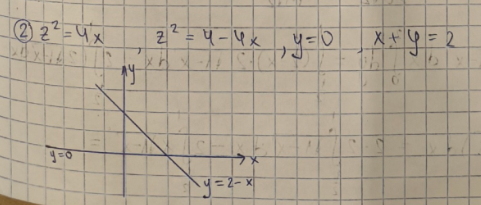 ② z² = 4x , z² = 4 - 4x , y = 0 , x + y = 2
y
y=0
x
y = 2 - x